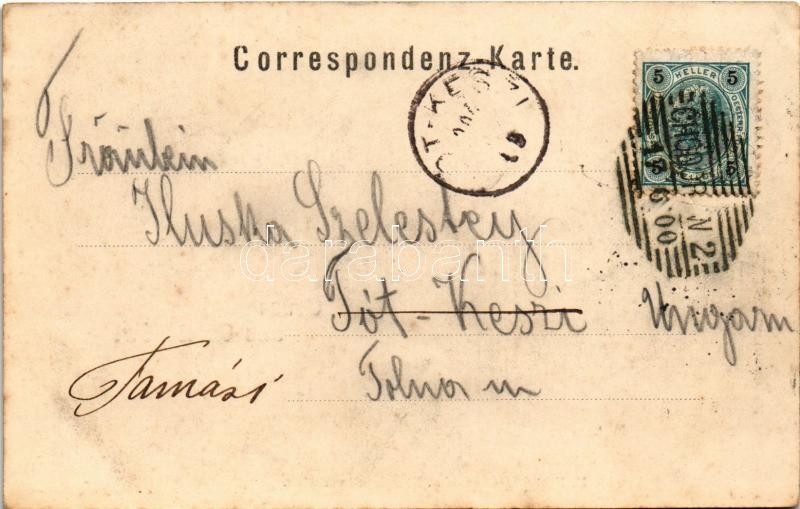 Correspondenz-Karte.
5 HELLER 5
6.00
Fräulein
Iluska Szelestey
Tót-Keszi Ungarn
Tamási
Tolna m
darabanth